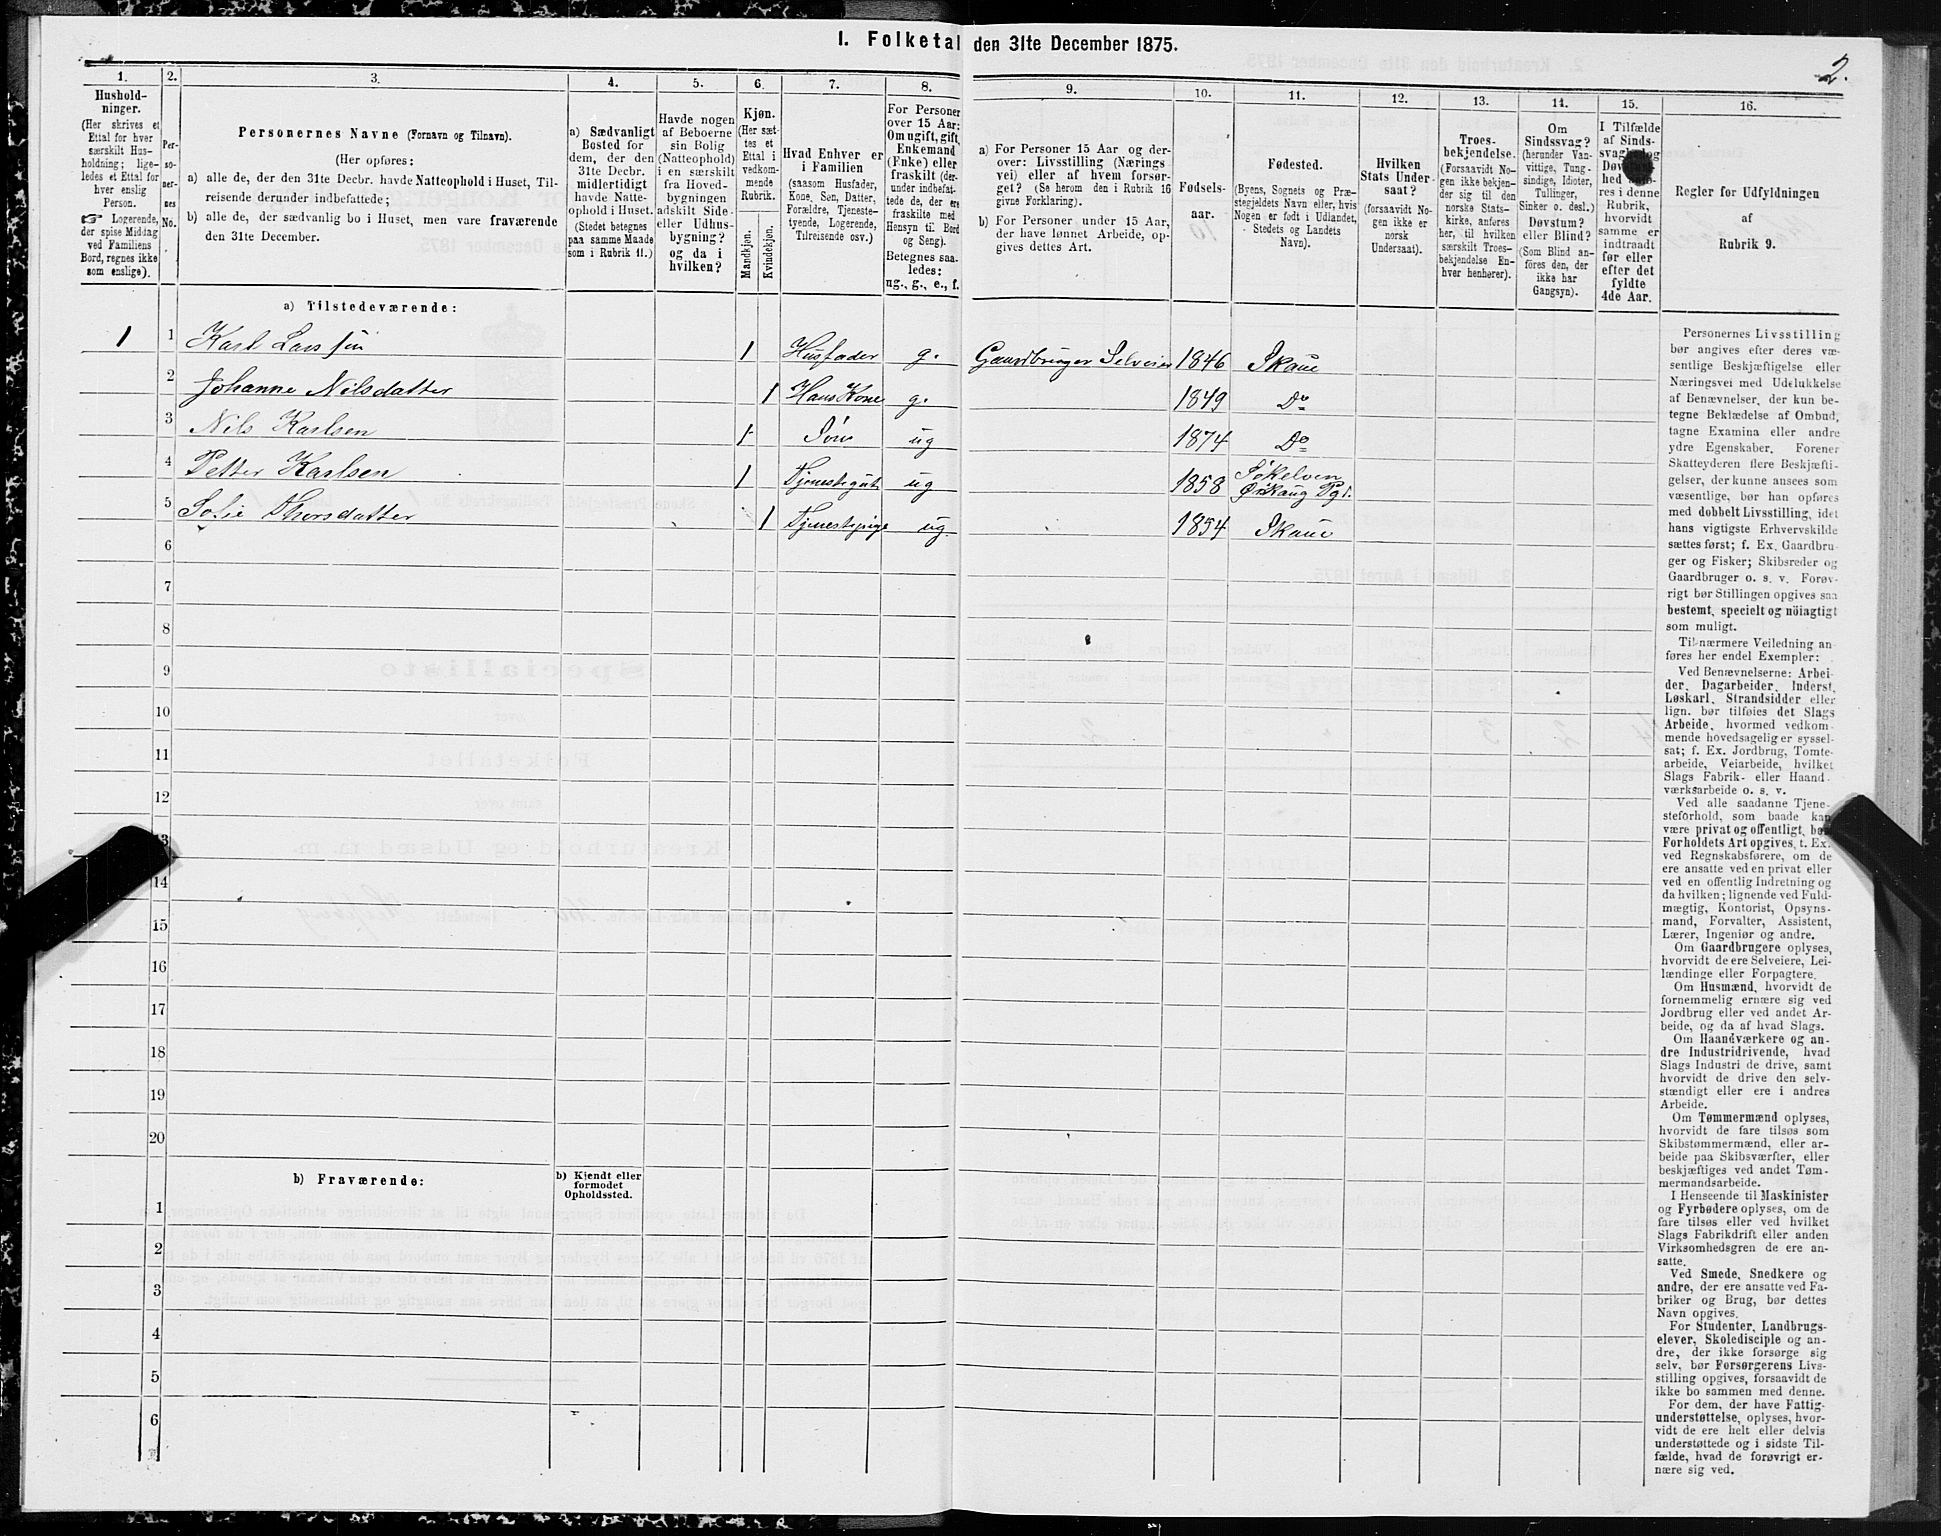 I. Folketal den 31te December 1875.
2.
1.
Hushold-
ninger.
(Her skrives et
Ettal for hver
særskilt Hus-
holdning; lige-
ledes et Ettal for
hver enslig
Person.
☞ Logerende,
der spise Middag
ved Familiens
Bord, regnes ikke
som enslige).
2.
Per-
so-
ner-
nes
No.
3.
Personernes Navne (Fornavn og Tilnavn).
(Her opføres:
a) alle de, der den 31te Decbr. havde Natteophold i Huset, Til-
reisende derunder indbefattede;
b) alle de, der sædvanlig bo i Huset, men vare fraværende
den 31te December.
4.
a) Sædvanligt
Bosted for
dem, der den
31te Decbr.
midlertidigt
havde Natte-
ophold i Huset.
(Stedet betegnes
paa samme Maade
som i Rubrik 11.)
5.
Havde nogen
af Beboerne
sin Bolig
(Natteophold)
i en særskilt
fra Hoved-
bygningen
adskilt Side-
eller Udhus-
bygning?
og da i
hvilken?
6.
Kjøn.
(Her sæt-
tes et
Ettal i
vedkom-
mende
Rubrik.
Mandkjøn.
Kvindekjøn.
7.
Hvad Enhver er
i Familien
(saasom Husfader,
Kone, Søn, Datter,
Forældre, Tjeneste-
tyende, Logerende,
Tilreisende osv.)
8.
For Personer
over 15 Aar:
Om ugift, gift,
Enkemand
(Enke) eller
fraskilt (der-
under indbefat-
tede de, der ere
fraskilte med
Hensyn til Bord
og Seng).
Betegnes saa-
ledes:
ug., g., e., f.
9.
a) For Personer 15 Aar og der-
over: Livsstilling (Nærings
vei) eller af hvem forsør-
get? (Se herom den i Rubrik 16
givne Forklaring).
b) For Personer under 15 Aar,
der have lønnet Arbeide, op-
gives dettes Art.
10.
Fødsels-
aar.
11.
Fødested.
(Byens, Sognets og Præ-
stegjeldets Navn eller, hvis
Nogen er født i Udlandet,
Stedets og Landets
Navn).
12.
Hvilken
Stats Under-
saat?
(forsaavidt No-
gen ikke er
norsk
Undersaat).
13.
Troes-
bekjendelse.
(Forsaavidt No-
gen ikke bekjen-
der sig til den
norske Stats-
kirke, anføres
her, til hvilken
særskilt Troes-
bekjendelse En-
hver henhører).
14.
Om
Sindssvag?
(herunder Van-
vittige, Tung-
sindige, Idioter,
Tullinger,
Sinker o. desl.)
Døvstum?
eller Blind?
(Som Blind an-
føres den, der
ikke har
Gangsyn).
15.
I Tilfælde
af Sinds-
svaghed og
Døvstum-
hed anfø-
res i denne
Rubrik,
hvorvidt
samme er
indtraadt
før eller
efter det
fyldte
4de Aar.
16.
Regler for Udfyldningen
af
Rubrik 9.
a) Tilstedeværende:
1 1 Karl Larssøn 1 Husfader g. Gaardbruger Selveier 1846 Skaue
2 Johanne Nilsdatter 1 Hans Kone g. 1849 Do
3 Nils Karlsen 1 Søn ug 1874 Do
4 Petter Karlsen 1 Tjenestegut ug 1858 Søkelven
Ørskaug Pgl.
5 Sofie Thorsdatter 1 Tjenestepige ug. 1854 Skaue
6
7
8
9
10
11
12
13
14
15
16
17
18
19
20
b) Fraværende:
b) Kjendt eller
formodet
Opholdssted.
1
2
3
4
5
6
Personernes Livsstilling
bør angives efter deres væ-
sentlige Beskjæftigelse eller
Næringsvei med Udelukkelse
af Benævnelser, der kun be-
tegne Beklædelse af Ombud,
tagne Examina eller andre
ydre Egenskaber. Forener
Skatteyderen flere Beskjæfti-
gelser, der kunne ansees som
væsentlige, bør han opføres
med dobbelt Livsstilling, idet
hans vigtigste Erhvervskilde
sættes først; f. Ex. Gaardbru-
ger og Fisker; Skibsreder og
Gaardbruger o. s. v. Forøv-
rigt bør Stillingen opgives saa
bestemt, specielt og nöiagtigt
som muligt.
Til nærmere Veiledning an-
føres her endel Exempler:
Ved Benævnelserne: Arbei-
der, Dagarbeider, Inderst,
Løskarl, Strandsidder eller
lign. bør tilføies det Slags
Arbeide, hvormed vedkom-
mende hovedsagelig er syssel-
sat; f. Ex. Jordbrug, Tomte-
arbeide, Veiarbeide, hvilket
Slags Fabrik- eller Haand-
værksarbeide o. s. v.
Ved alle saadanne Tjene-
steforhold, som baade kan
være privat og offentligt, bør
Forholdets Art opgives, t. Ex.
ved Regnskabsførere, om de
ere ansatte ved en privat eller
ved en offentlig Indretning og
da hvilken; lignende ved Fuld-
mægtig, Kontorist, Opsyns-
mand, Forvalter, Assistent,
Lærer, Ingeniør og andre.
Om Gaardbrugere oplyses,
hvorvidt de ere Selveiere, Lei-
lændinge eller Forpagtere.
Om Husmænd, hvorvidt de
fornemmelig ernære sig ved
Jordbrug eller ved andet Ar-
beide, og da af hvad Slags.
Om Haandværkere og an-
dre Industridrivende, hvad
Slags Industri de drive, samt
hvorvidt de drive den selv-
stændigt eller ere i andres
Arbeide.
Om Tømmermænd oplyses,
hvorvidt de fare tilsøs som
Skibstømmermænd, eller ar-
beide paa Skibsværfter, eller
beskjæftiges ved andet Tøm-
mermandsarbeide.
I Henseende til Maskinister
og Fyrbødere oplyses, om de
fare tilsøs eller ved hvilket
Slags Fabrikdrift eller anden
Virksomhedsgren de ere an-
satte.
Ved Smede, Snedkere og
andre, der ere ansatte ved Fa-
briker og Brug, bør dettes
Navn opgives
For Studenter, Landbrugs-
elever, Skoledisciple og an-
dre, der ikke forsørge sig
selv, bør Forsørgerens Livs-
stilling opgives, forsaavidt de
ikke bo sammen med denne.
For dem, der have Fattig-
understøttelse, oplyses, hvor-
vidt de ere helt eller delvis
understøttede og i sidste Til-
fælde, hvad de forøvrigt er-
nære sig ved.